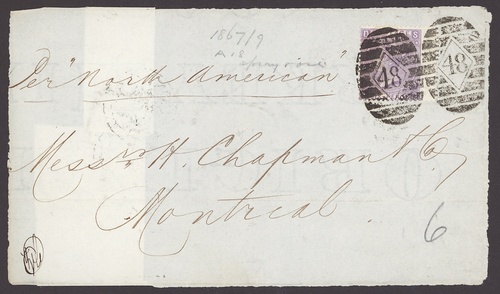 1867/9
A 18
Per "North American"
48
48
S
Messrs H. Chapman & Co
Montreal
6